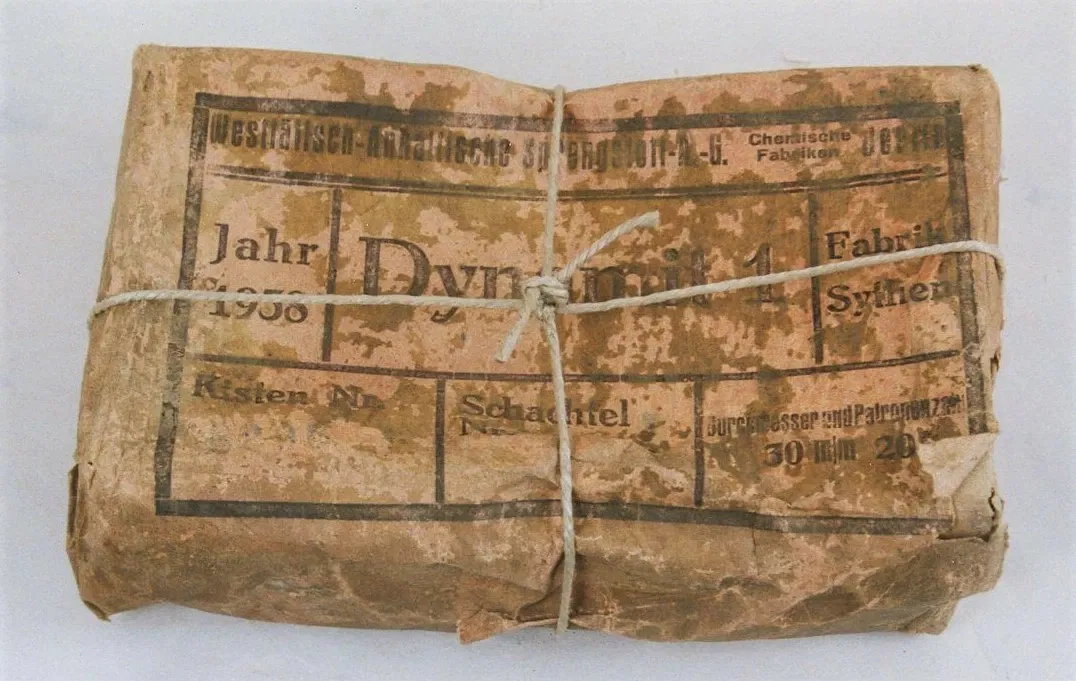 Westfälisch-Anhaltische Sprengstoff-A.-G. Chemische Fabriken Berlin
Jahr 1938
Dynamit 1
Fabrik Sythen
Kisten Nr.
Schachtel Nr.
Durchmesser und Patronenzahl
30 m/m 20